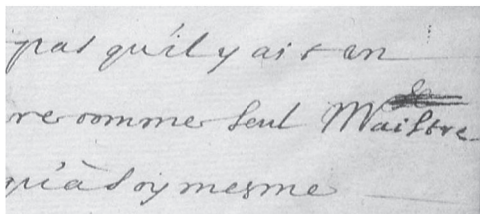 pas qu'il y ait en
re comme seul Maistre
qu'à soy mesme